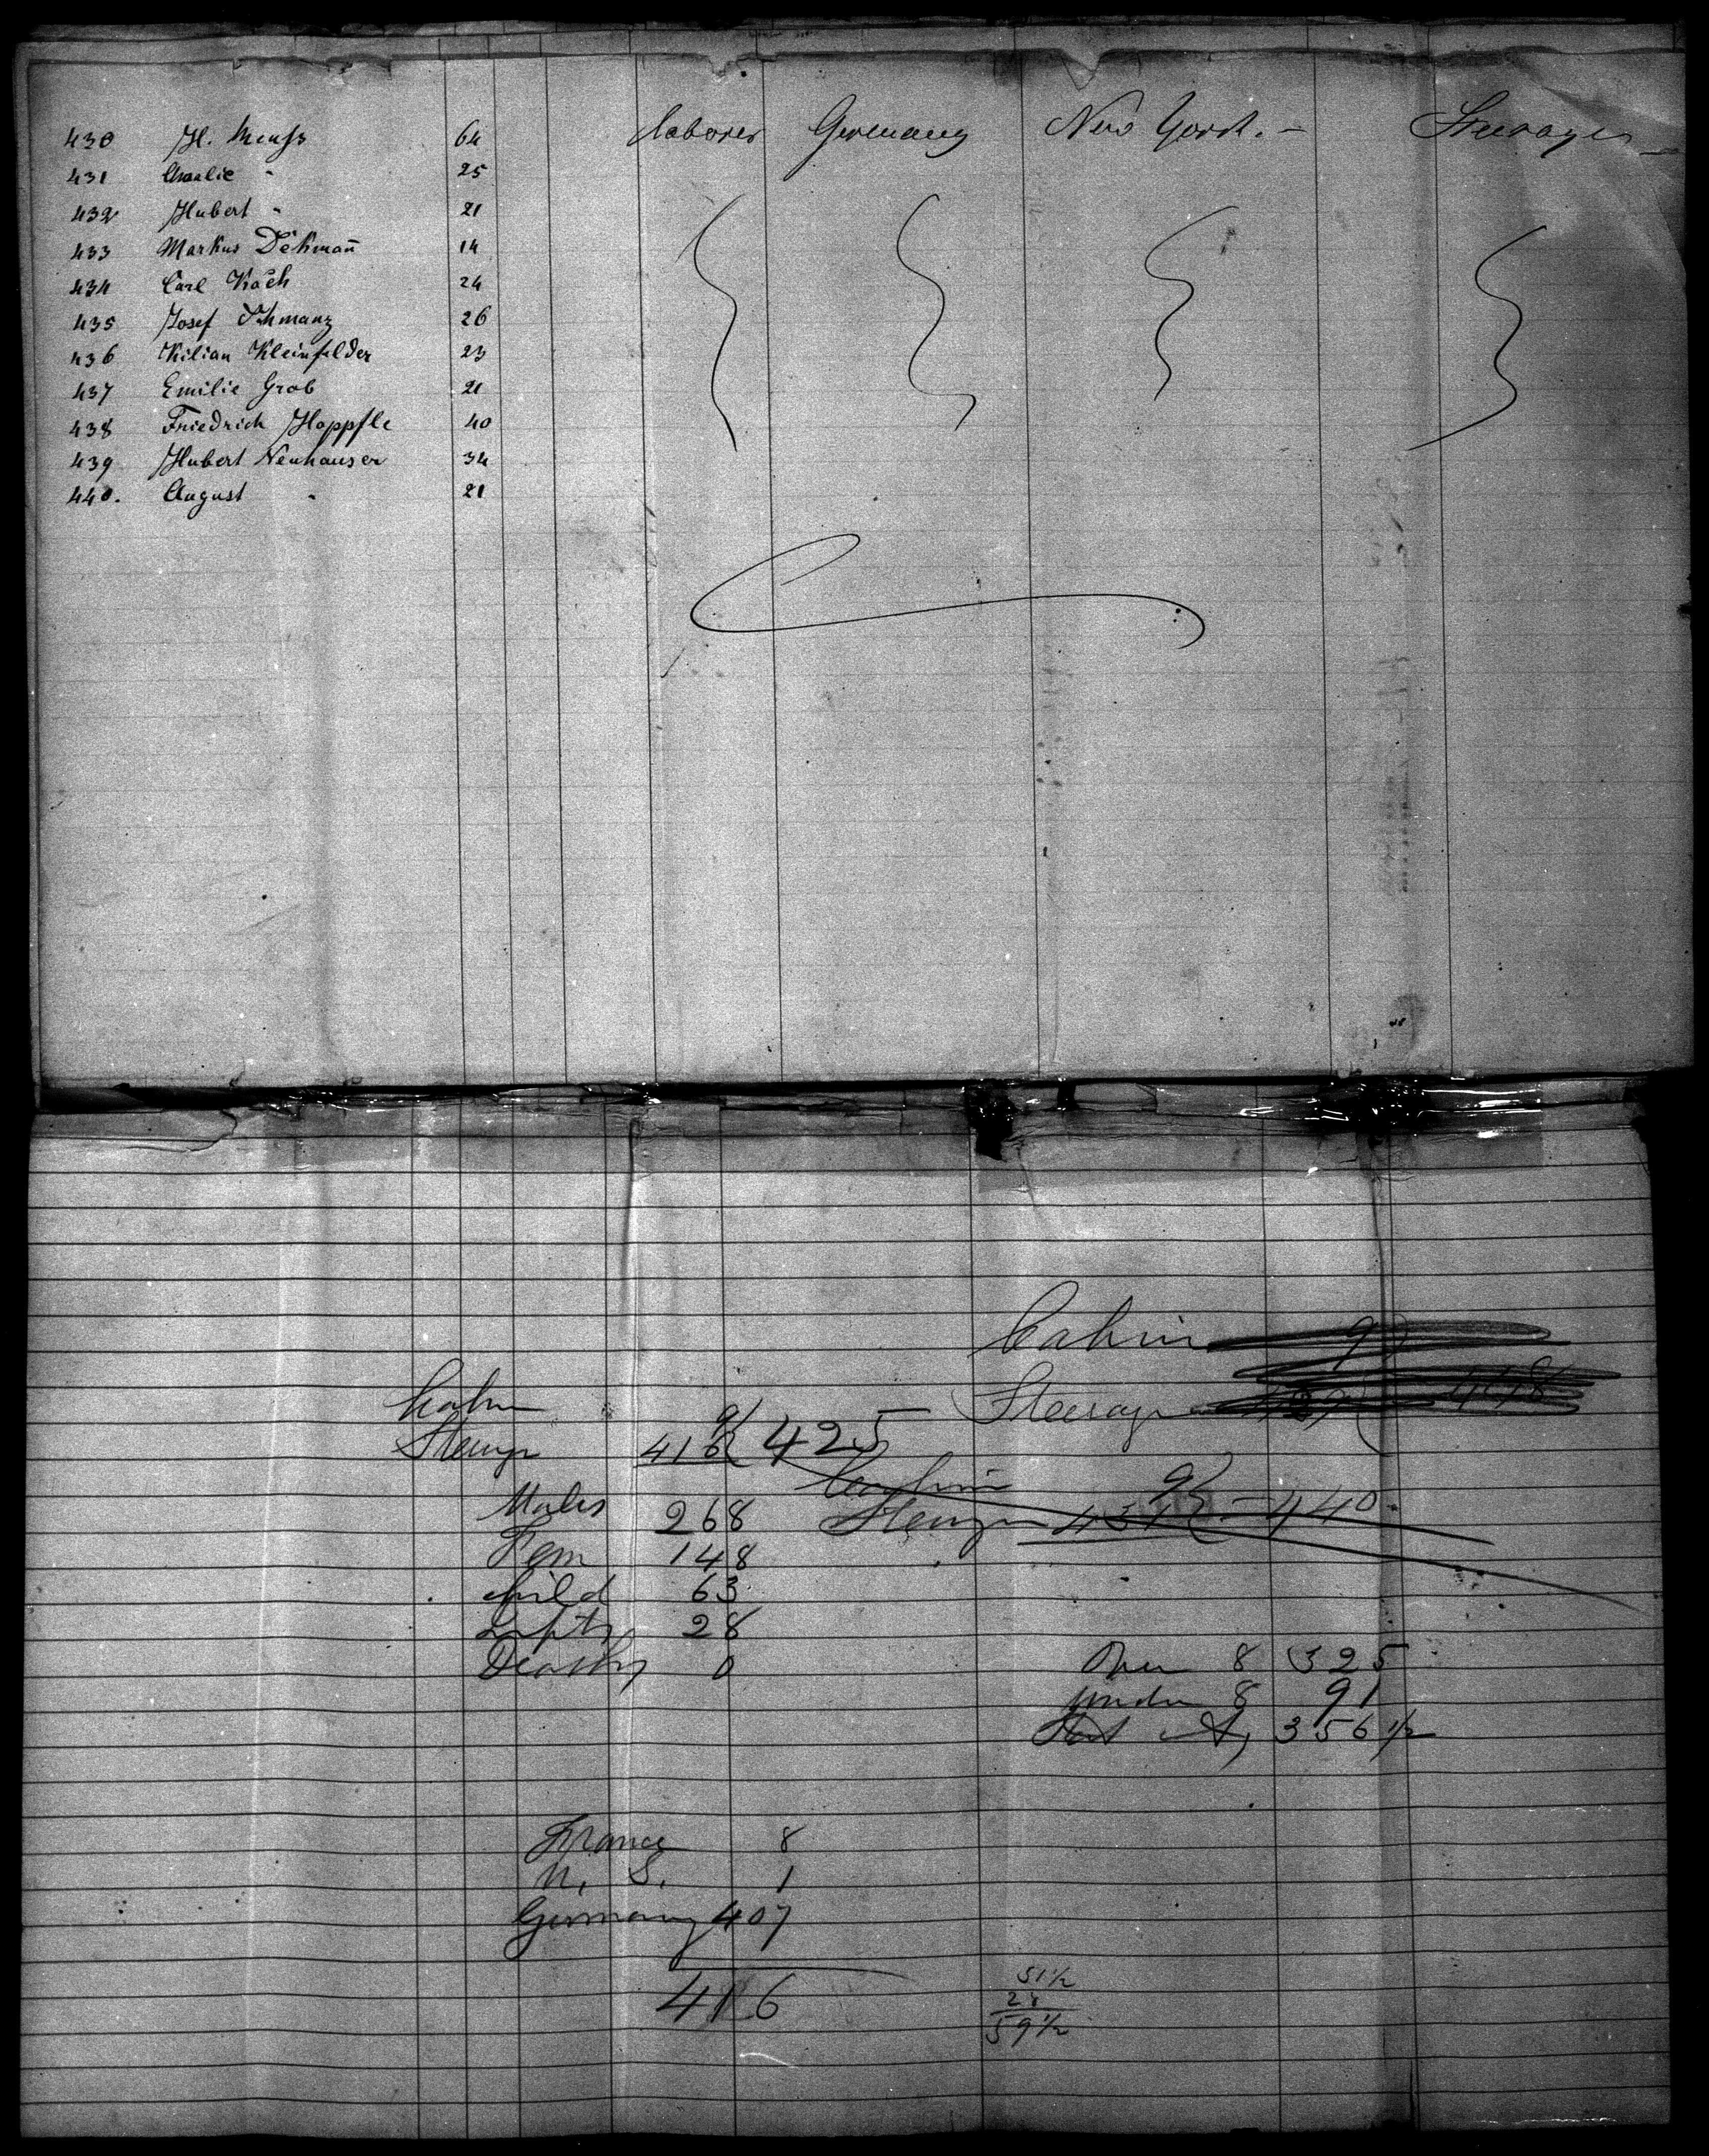 430 H. Meuss 64 laborer Germany New York. - Steerage
431 Amalie " 25
432 Hubert " 21
433 Markus Dehmañ 14
434 Carl Koch 24
435 Josef 26
436 Kilian Kleinfelder 23
437 Emilie Grob 21
438 Friedrich Hoppfle 40
439 Hubert Neuhauser 34
440. August " 21
Cabin 9
Steerage 448
Cabin 9
Steerage 416 425
Cabin 9
Steerage 431 - 440
Males 268
Fem 148
child 63
Infts 28
Deaths 0
Over 8 325
under 8 91
356 1/2
France 8
U. S. 1
Germany 407
416
51 1/2
28
59 1/2